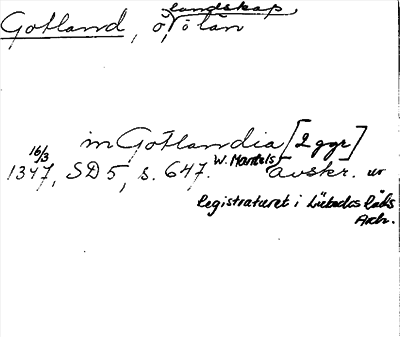 Gotland, ö, landskap, o län
in Gotlandia [2 ggr]
16/3 1347, SD 5, s. 647. W. Mantels avskr. ur
Registraturet i Lübecks Råds
Arch.